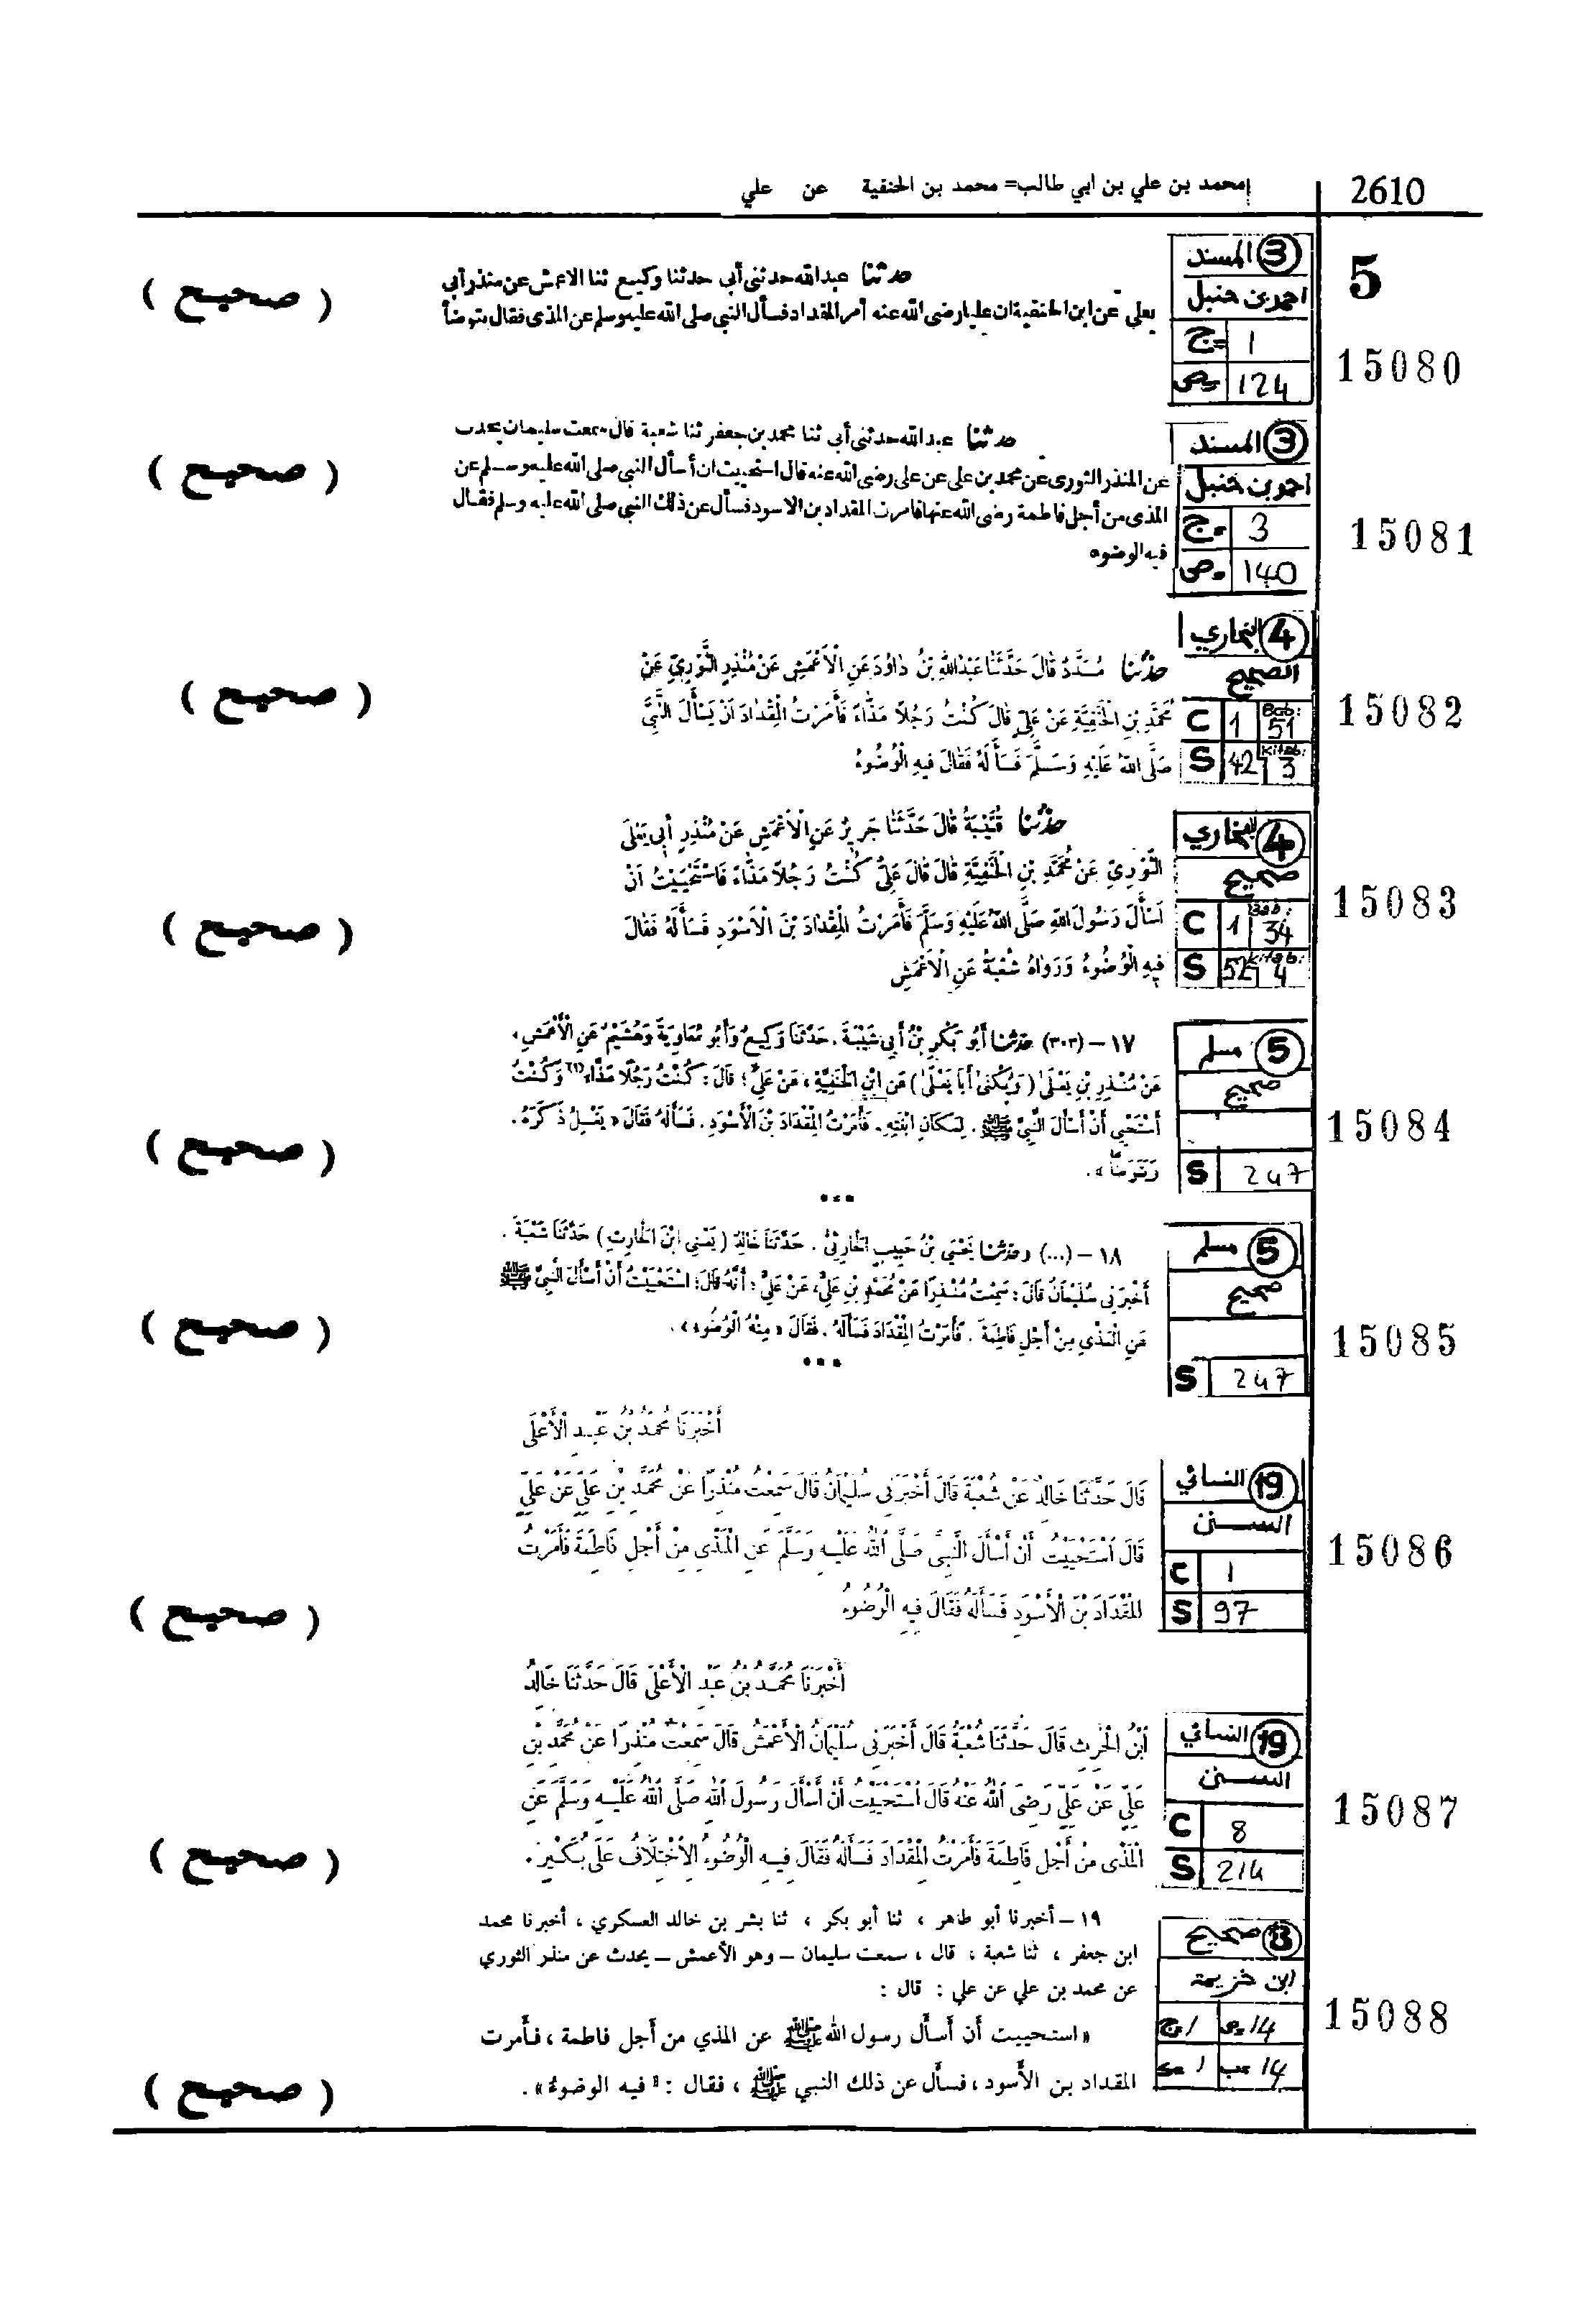 2610
محمد بن علي بن ابي طالب= محمد بن الحنفية عن علي
5
15080
3 المسند
احمد بن حنبل
ج= 1
ص= 124
حدثنا عبدالله حدثني أبي حدثنا وكيع ثنا الاعمش عن منذر أبي
يعلى عن ابن الحنفية ان عليا رضى الله عنه أمر المقداد فسأل النبي صلى الله عليه وسلم عن المذى فقال يتوضأ
( صحيح )
15081
3 المسند
احمد بن حنبل
ج= 3
ص= 140
حدثنا عبد الله حدثني أبي ثنا محمد بن جعفر ثنا شعبة قال سمعت سليمان يحدث
عن المنذر الثورى عن محمد بن على عن على رضى الله عنه قال استحييت ان أسأل النبي صلى الله عليه وسلم عن
المذى من أجل فاطمة رضى الله عنها فامرت المقداد بن الاسود فسأل عن ذلك النبي صلى الله عليه وسلم فقال
فيه الوضوء
( صحيح )
15082
4 البخاري
الصحيح
C 1 Bab: 51
S 42 Kitab: 3
حَدَّثَنَا مُسَدَّدٌ قَالَ حَدَّثَنَا عَبْدُاللهِ بْنُ دَاوُدَ عَنِ الْأَعْمَشِ عَنْ مُنْذِرٍ الثَّوْرِيِّ عَنْ
مُحَمَّدِ بْنِ الْحَنَفِيَّةِ عَنْ عَلِيٍّ قَالَ كُنْتُ رَجُلاً مَذَّاءً فَأَمَرْتُ الْمِقْدَادَ اَنْ يَسْأَلَ النَّبِيَّ
صَلَّى اللهُ عَلَيْهِ وَسَلَّمَ فَسَأَلَهُ فَقَالَ فِيهِ الْوُضُوءُ
( صحيح )
15083
4 البخاري
صحيح
C 1 Bab: 34
S 52 Kitab: 4
حَدَّثَنَا قُتَيْبَةُ قَالَ حَدَّثَنَا جَرِيرٌ عَنِ الْاَعْمَشِ عَنْ مُنْذِرٍ أَبِي يَعْلَى
الثَّوْرِيِّ عَنْ مُحَمَّدِ بْنِ الْحَنَفِيَّةِ قَالَ قَالَ عَلِيٌّ كُنْتُ رَجُلاً مَذَّاءً فَاسْتَحْيَيْتُ اَنْ
اَسْأَلَ رَسُولَ اللهِ صَلَّى اللهُ عَلَيْهِ وَسَلَّمَ فَأَمَرْتُ الْمِقْدَادَ بْنَ الْاَسْوَدِ فَسَأَلَهُ فَقَالَ
فِيهِ الْوُضُوءُ وَرَوَاهُ شُعْبَةُ عَنِ الْاَعْمَشِ
( صحيح )
15084
5 مسلم
صحيح
S 247
١٧ – (٣٠٣) حدثنا أَبُو بَكْرِ بْنُ أَبِي شَيْبَةَ. حَدَّثَنَا وَكِيعٌ وَأَبُو مُعَاوِيَةَ وَهُشَيْمٌ عَنِ الْأَعْمَشِ،
عَنْ مُنْذِرِ بْنِ يَعْلَىٰ (وَيُكْنَىٰ أَبَا يَعْلَىٰ) عَنِ ابْنِ الْحَنَفِيَّةِ، عَنْ عَلِيٍّ؛ قَالَ: كُنْتُ رَجُلًا مَذَّاءً(١) وَكُنْتُ
أَسْتَحْيِي أَنْ أَسْأَلَ النَّبِيَّ ﷺ. لِمَكَانِ ابْنَتِهِ. فَأَمَرْتُ الْمِقْدَادَ بْنَ الْأَسْوَدِ. فَسَأَلَهُ فَقَالَ «يَغْسِلُ ذَكَرَهُ.
وَيَتَوَضَّأُ».
***
( صحيح )
15085
5 مسلم
صحيح
S 247
١٨ – (...) وحدثنا يَحْيَى بْنُ حَبِيبٍ الْحَارِثِيُّ. حَدَّثَنَا خَالِدٌ (يَعْنِي ابْنَ الْحَارِثِ) حَدَّثَنَا شُعْبَةُ.
أَخْبَرَنِي سُلَيْمَانُ قَالَ: سَمِعْتُ مُنْذِرًا عَنْ مُحَمَّدِ بْنِ عَلِيٍّ، عَنْ عَلِيٍّ؛ أَنَّهُ قَالَ: اسْتَحْيَيْتُ أَنْ أَسْأَلَ النَّبِيَّ ﷺ
عَنِ الْمَذْيِ مِنْ أَجْلِ فَاطِمَةَ. فَأَمَرْتُ الْمِقْدَادَ فَسَأَلَهُ. فَقَالَ «مِنْهُ الْوُضُوءُ».
***
( صحيح )
15086
19 النسائي
السنن
C 1
S 97
أَخْبَرَنَا مُحَمَّدُ بْنُ عَبْدِ الْأَعْلَى
قَالَ حَدَّثَنَا خَالِدٌ عَنْ شُعْبَةَ قَالَ أَخْبَرَنِي سُلَيْمَانُ قَالَ سَمِعْتُ مُنْذِرًا عَنْ مُحَمَّدِ بْنِ عَلِيٍّ عَنْ عَلِيٍّ
قَالَ اسْتَحْيَيْتُ أَنْ أَسْأَلَ النَّبِيَّ صَلَّى اللهُ عَلَيْهِ وَسَلَّمَ عَنِ الْمَذْيِ مِنْ أَجْلِ فَاطِمَةَ فَأَمَرْتُ
الْمِقْدَادَ بْنَ الْأَسْوَدِ فَسَأَلَهُ فَقَالَ فِيهِ الْوُضُوءُ
( صحيح )
15087
19 النسائي
السنن
C 8
S 214
أَخْبَرَنَا مُحَمَّدُ بْنُ عَبْدِ الْأَعْلَى قَالَ حَدَّثَنَا خَالِدُ
ابْنُ الْحَرِثِ قَالَ حَدَّثَنَا شُعْبَةُ قَالَ أَخْبَرَنِي سُلَيْمَانُ الْأَعْمَشُ قَالَ سَمِعْتُ مُنْذِرًا عَنْ مُحَمَّدِ بْنِ
عَلِيٍّ عَنْ عَلِيٍّ رَضِيَ اللهُ عَنْهُ قَالَ اسْتَحْيَيْتُ أَنْ أَسْأَلَ رَسُولَ اللهِ صَلَّى اللهُ عَلَيْهِ وَسَلَّمَ عَنِ
الْمَذْيِ مِنْ أَجْلِ فَاطِمَةَ فَأَمَرْتُ الْمِقْدَادَ فَسَأَلَهُ فَقَالَ فِيهِ الْوُضُوءُ الِاخْتِلَافُ عَلَى بُكَيْرٍ.
( صحيح )
15088
صحيح
ابن خزيمة
ج 1 ص 14
14
١٩ – أخبرنا أبو طاهر ، ثنا أبو بكر ، ثنا بشر بن خالد العسكري ، أخبرنا محمد
ابن جعفر ، ثنا شعبة ، قال ، سمعت سليمان – وهو الأعمش – يحدث عن منذر الثوري
عن محمد بن علي عن علي : قال :
«استحييت أن أسأل رسول الله ﷺ عن المذي من أجل فاطمة ، فأمرت
المقداد بن الأسود ، فسأل عن ذلك النبي ﷺ ، فقال : «فيه الوضوءُ».
( صحيح )